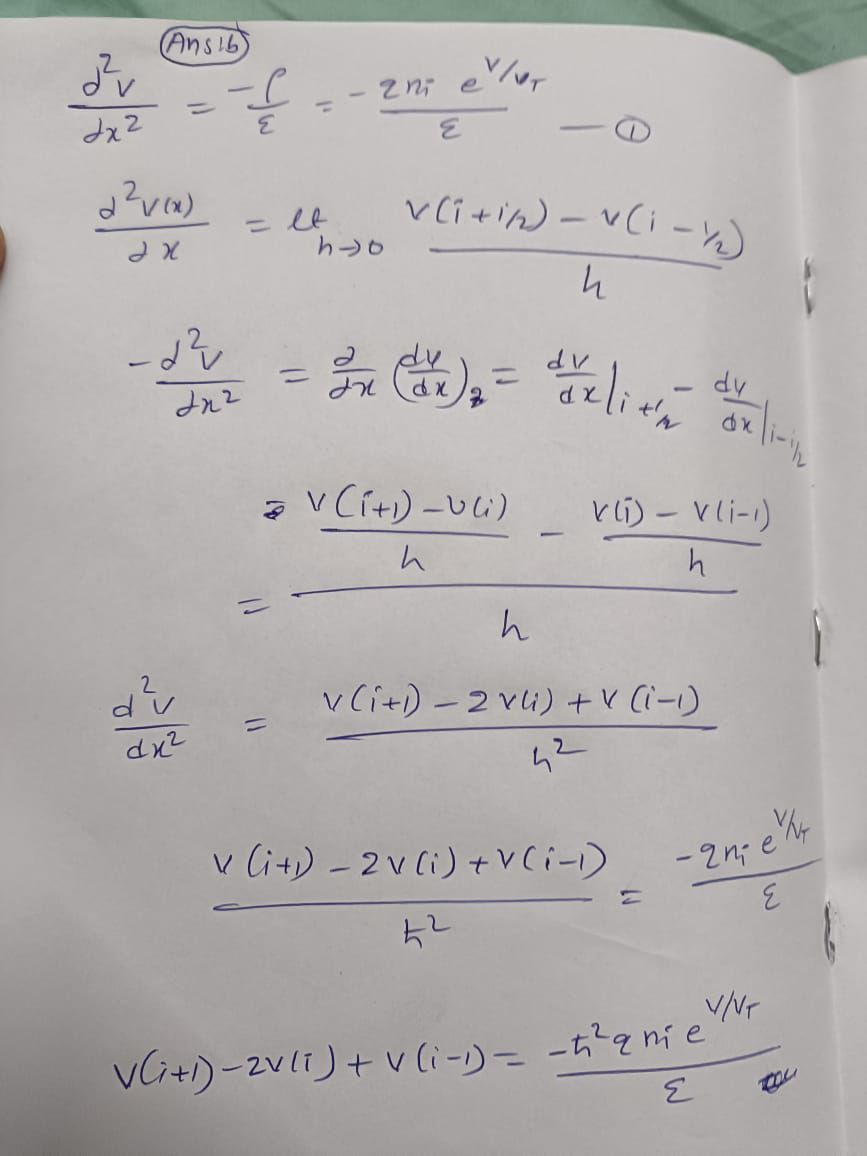 Ans 1b
d²v/dx² = -ρ/ε = - q ni e^(V/VT)/ε — ①
d²v(x)/dx = lt h→0 (v(i+1/2) - v(i-1/2))/h
-d²v/dx² = d/dx (dv/dx) = dv/dx|i+1/2 - dv/dx|i-1/2
= (v(i+1) - v(i))/h - (v(i) - v(i-1))/h
= h
d²v/dx² = (v(i+1) - 2v(i) + v(i-1))/h²
(v(i+1) - 2v(i) + v(i-1))/ħ² = -q ni e^(V/VT)/ε
v(i+1) - 2v(i) + v(i-1) = -ħ² q ni e^(V/VT)/ε